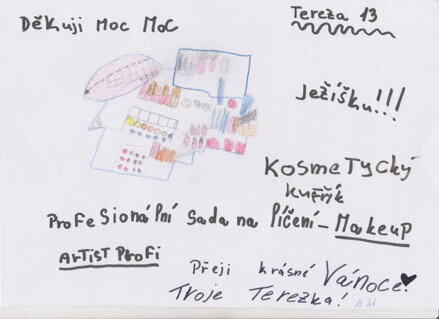 Děkuji Moc Moc
Tereza 13
Ježíšku!!!
KosmeTycký
kufřík
ProfeSionáPní Sada na Píčení - Makeup
ArTisT Profi
Přeji krásné Vánoce
Troje Terezka!
13 let